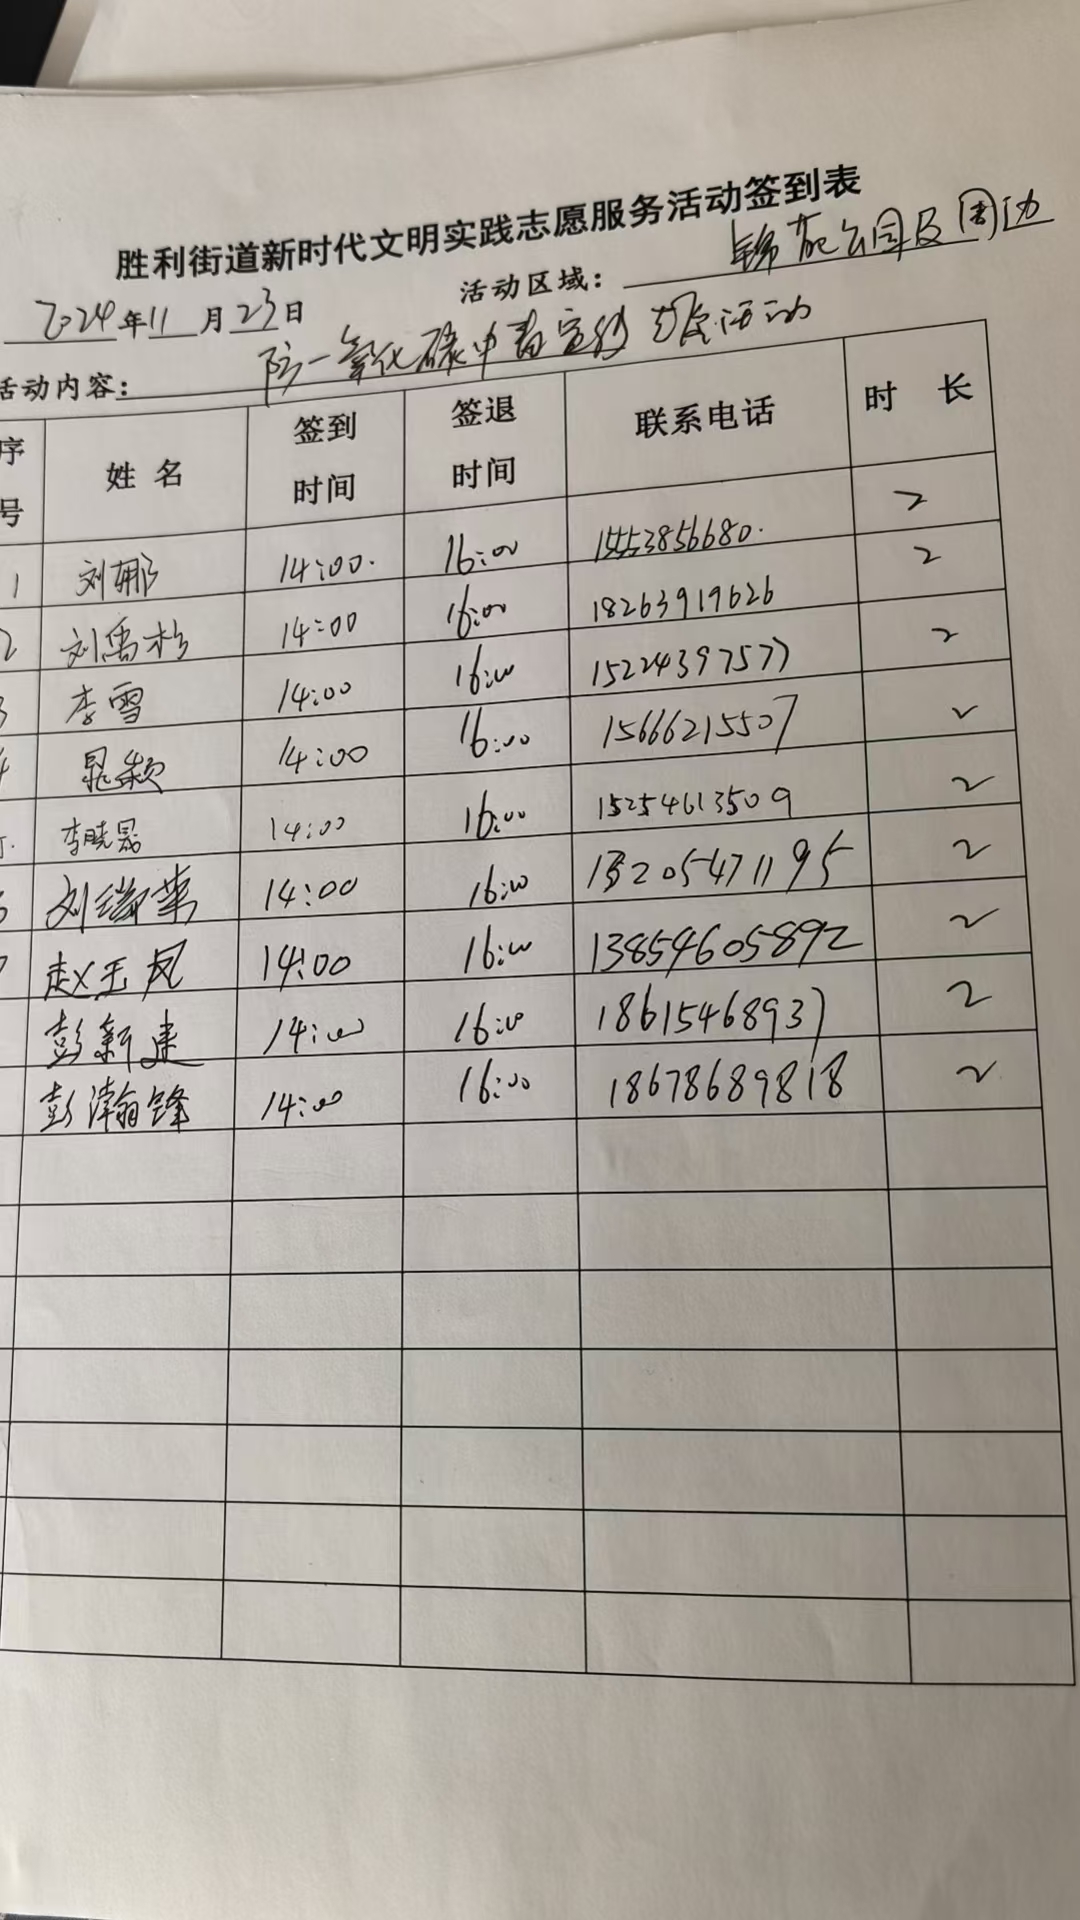 胜利街道新时代文明实践志愿服务活动签到表
2024年11月23日 活动区域：锦苑公园及周边
活动内容：防一氧化碳中毒宣传志愿活动
序号 姓名 签到时间 签退时间 联系电话 时长
1 刘娜 14:00. 16:00 15553856680. 2
2 刘禹杉 14:00 16:00 18263919626 2
3 李雪 14:00 16:00 15224397577 2
4 晁颖 14:00 16:00 15666215507 2
5. 李晓 14:00 16:00 15254613509 2
6 刘瑞華 14:00 16:00 13205471195 2
7 赵玉凤 14:00 16:00 13854605892 2
彭新建 14:00 16:00 18615468937 2
彭瀚锋 14:00 16:00 18678689818 2